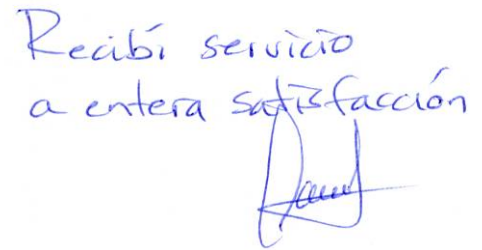 Recibí servicio
a entera satisfacción